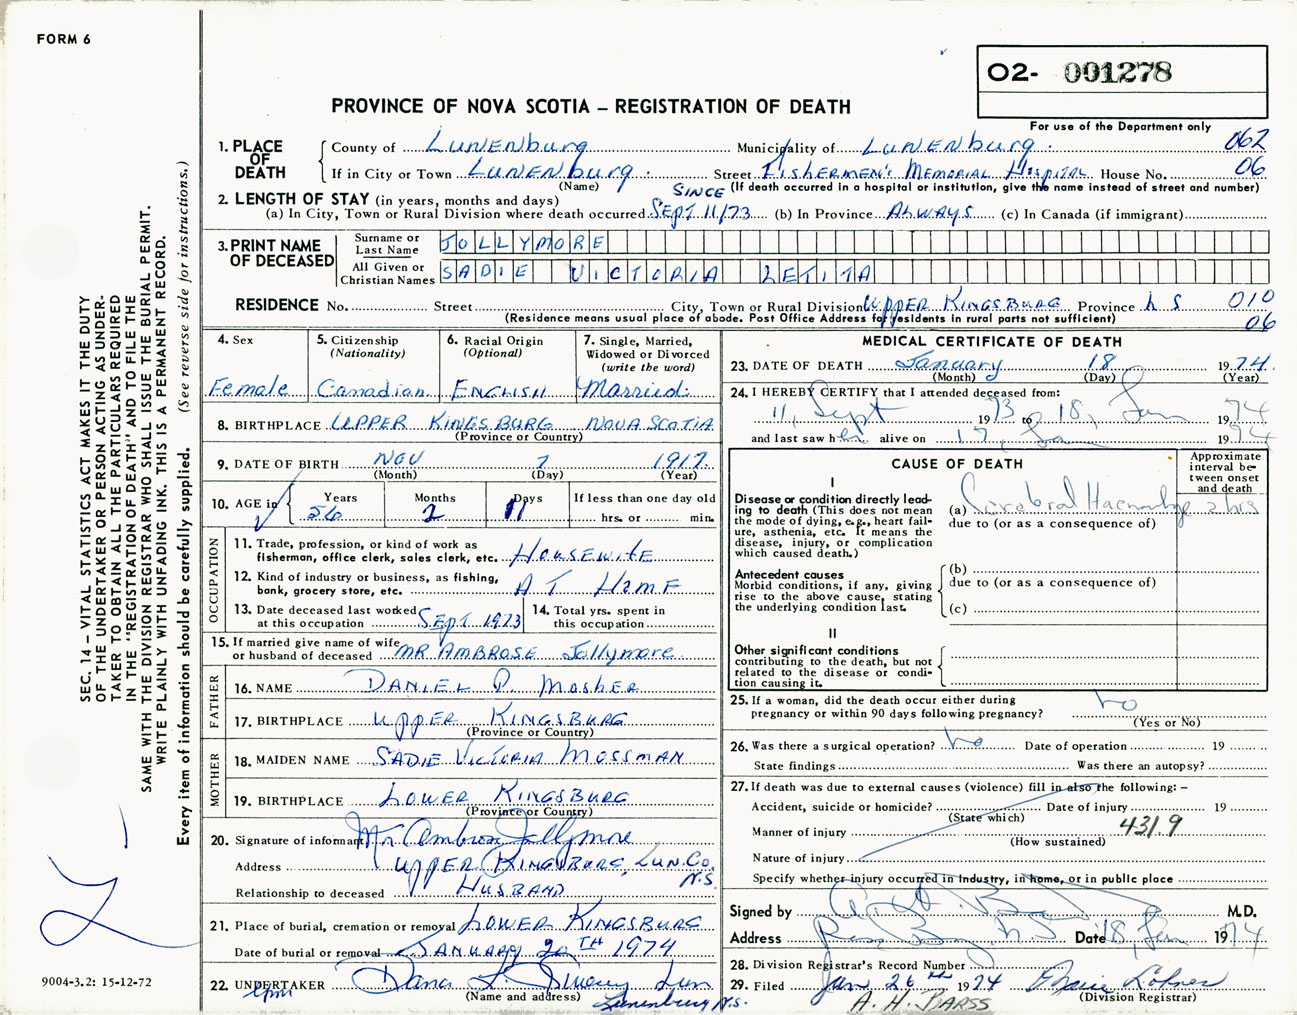 FORM 6
O2- 001278
PROVINCE OF NOVA SCOTIA – REGISTRATION OF DEATH
For use of the Department only
1. PLACE OF DEATH
County of Lunenburg Municipality of Lunenburg. 062
If in City or Town Lunenburg. Street Fishermen's Memorial Hospital House No. 06
(Name) (If death occurred in a hospital or institution, give the name instead of street and number)
2. LENGTH OF STAY (in years, months and days)
(a) In City, Town or Rural Division where death occurred SINCE SEPT 11/73 (b) In Province ALWAYS (c) In Canada (if immigrant)
3. PRINT NAME OF DECEASED
Surname or Last Name JOLLYMORE
All Given or Christian Names SADIE VICTORIA LETITA
RESIDENCE No. Street City, Town or Rural Division UPPER KINGSBURG Province N S 010
(Residence means usual place of abode. Post Office Address for residents in rural parts not sufficient) 06
4. Sex
Female
5. Citizenship (Nationality)
Canadian
6. Racial Origin (Optional)
ENGLISH
7. Single, Married, Widowed or Divorced (write the word)
Married
8. BIRTHPLACE UPPER KINGSBURG NOVA SCOTIA
(Province or Country)
9. DATE OF BIRTH NOV 7 1917
(Month) (Day) (Year)
10. AGE in Years Months Days If less than one day old
56 2 11 hrs. or min.
OCCUPATION
11. Trade, profession, or kind of work as
fisherman, office clerk, sales clerk, etc. HOUSEWIFE
12. Kind of industry or business, as fishing,
bank, grocery store, etc. AT HOME
13. Date deceased last worked
at this occupation SEPT. 1973
14. Total yrs. spent in
this occupation
15. If married give name of wife
or husband of deceased MR AMBROSE Jollymore
FATHER
16. NAME DANIEL P. MOSHER
17. BIRTHPLACE UPPER KINGSBURG
(Province or Country)
MOTHER
18. MAIDEN NAME SADIE VICTORIA MOSSMAN
19. BIRTHPLACE LOWER KINGSBURG
(Province or Country)
20. Signature of informant Mr Ambrose Jollymore
Address UPPER KINGSBURG, LUN. CO. N.S.
Relationship to deceased HUSBAND
21. Place of burial, cremation or removal LOWER KINGSBURG
Date of burial or removal JANUARY 20TH 1974
22. UNDERTAKER Dana L. Sweeny Lun
(Name and address) Lunenburg N.S.
MEDICAL CERTIFICATE OF DEATH
23. DATE OF DEATH January 18 1974
(Month) (Day) (Year)
24. I HEREBY CERTIFY that I attended deceased from:
11, Sept 1973 to 18, Jan 1974
and last saw her alive on 17, Jan 1974
CAUSE OF DEATH
Approximate interval between onset and death
I
Disease or condition directly leading to death (This does not mean
the mode of dying, e.g., heart failure, asthenia, etc. It means the
disease, injury, or complication
which caused death.)
(a) Cerebral Haemorrhage 2 hrs
due to (or as a consequence of)
Antecedent causes
Morbid conditions, if any, giving
rise to the above cause, stating
the underlying condition last.
(b)
due to (or as a consequence of)
(c)
II
Other significant conditions
contributing to the death, but not
related to the disease or condition causing it.
25. If a woman, did the death occur either during
pregnancy or within 90 days following pregnancy? no
(Yes or No)
26. Was there a surgical operation? no Date of operation 19
State findings Was there an autopsy?
27. If death was due to external causes (violence) fill in also the following: –
Accident, suicide or homicide? Date of injury 19
(State which)
Manner of injury 431.9
(How sustained)
Nature of injury
Specify whether injury occurred in industry, in home, or in public place
Signed by M.D.
Address Date 18, Jan 1974
28. Division Registrar's Record Number
29. Filed Jan 26th 1974
(Division Registrar)
A. H. BARSS
SEC. 14 – VITAL STATISTICS ACT MAKES IT THE DUTY
OF THE UNDERTAKER OR PERSON ACTING AS UNDERTAKER TO OBTAIN ALL THE PARTICULARS REQUIRED
IN THE "REGISTRATION OF DEATH" AND TO FILE THE
SAME WITH THE DIVISION REGISTRAR WHO SHALL ISSUE THE BURIAL PERMIT.
WRITE PLAINLY WITH UNFADING INK. THIS IS A PERMANENT RECORD.
Every item of information should be carefully supplied. (See reverse side for instructions.)
9004-3.2: 15-12-72